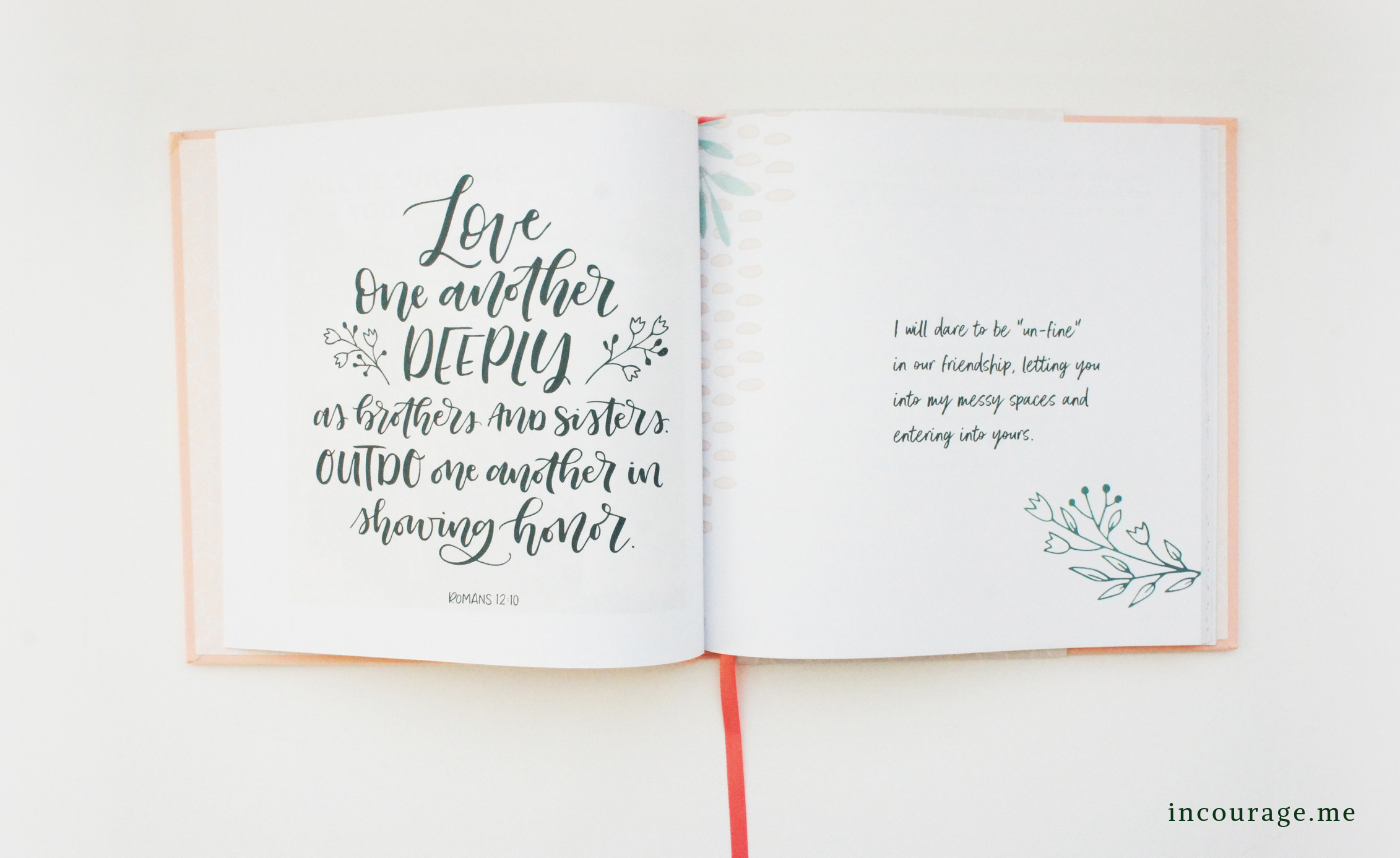 Love
one another
DEEPLY
as brothers AND sisters.
OUTDO one another in
showing honor.
ROMANS 12:10
I will dare to be "un-fine"
in our friendship, letting you
into my messy spaces and
entering into yours.
incourage.me